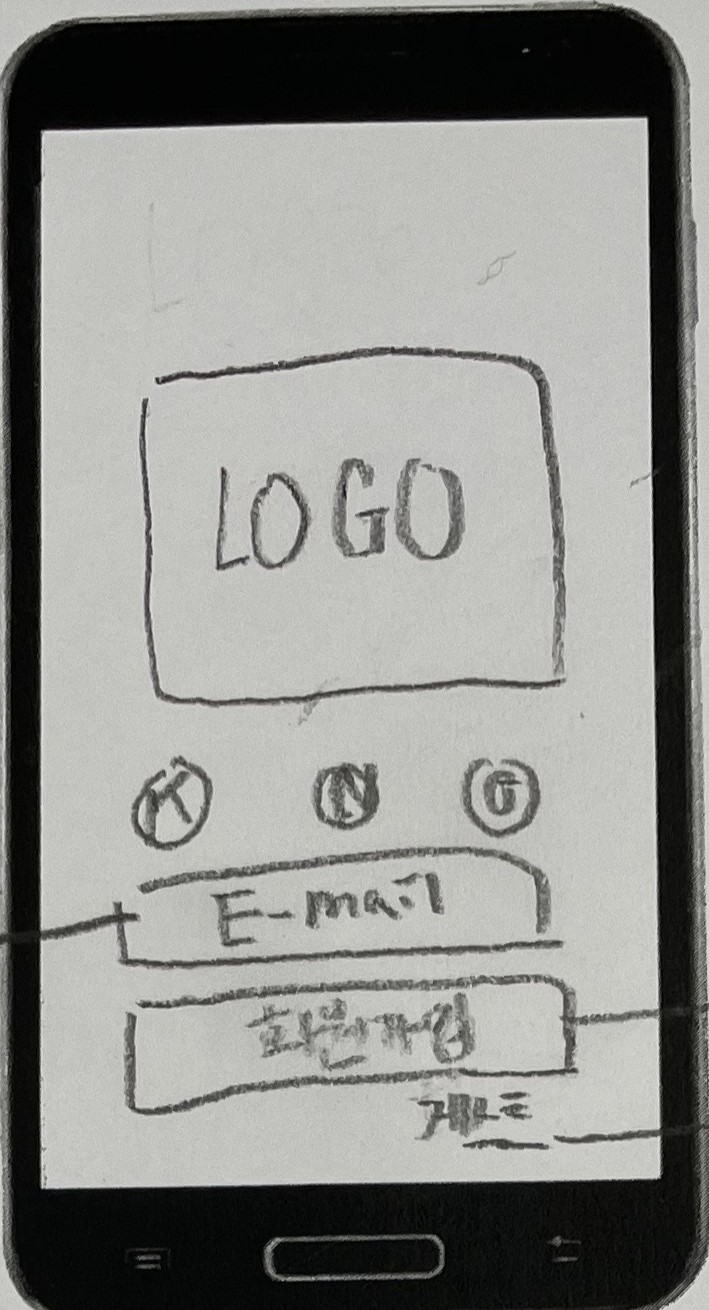 LOGO
K N G
E-mail
회원가입
게스트